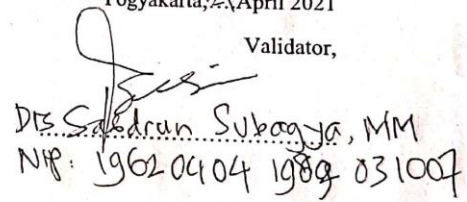 Yogyakarta, 21 April 2021
Validator,
Drs. Saludrun Subagya, MM
NIP: 19620404 1989 031007